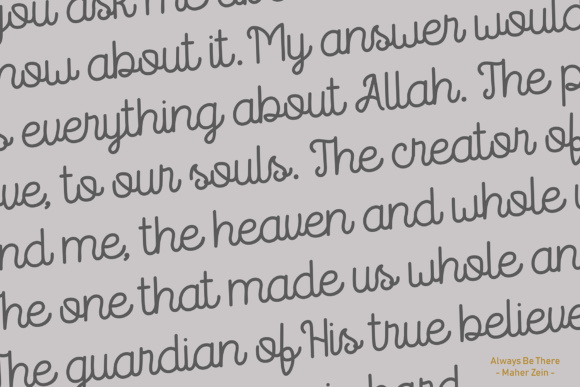 you ask me
now about it. My answer would
everything about Allah. The
to our souls. The creator of
me, the heaven and whole
The one that made us whole
The guardian of His true believe
Always Be There
- Maher Zein -